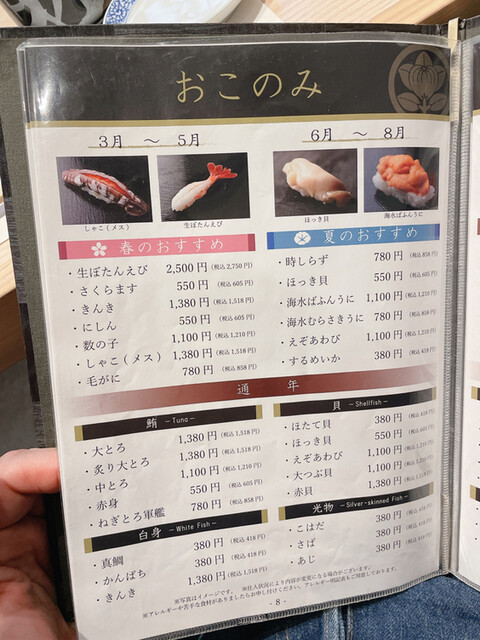 おこのみ
3月 ～ 5月
6月 ～ 8月
しゃこ(メス)
生ぼたんえび
ほっき貝
海水ばふんうに
春のおすすめ
・生ぼたんえび 2,500円 (税込 2,750円)
・さくらます 550円 (税込 605円)
・きんき 1,380円 (税込 1,518円)
・にしん 550円 (税込 605円)
・数の子 1,100円 (税込 1,210円)
・しゃこ(メス) 1,380円 (税込 1,518円)
・毛がに 780円 (税込 858円)
夏のおすすめ
・時しらず 780円 (税込 858円)
・ほっき貝 550円 (税込 605円)
・海水ばふんうに 1,100円 (税込 1,210円)
・海水むらさきうに 780円 (税込 858円)
・えぞあわび 1,100円 (税込 1,210円)
・するめいか 380円 (税込 418円)
通 年
鮪 -Tuna-
・大とろ 1,380円 (税込 1,518円)
・炙り大とろ 1,380円 (税込 1,518円)
・中とろ 1,100円 (税込 1,210円)
・赤身 550円 (税込 605円)
・ねぎとろ軍艦 780円 (税込 858円)
白身 -White Fish-
・真鯛 380円 (税込 418円)
・かんぱち 380円 (税込 418円)
・きんき 1,380円 (税込 1,518円)
貝 -Shellfish-
・ほたて貝 380円 (税込 418円)
・ほっき貝 550円 (税込 605円)
・えぞあわび 1,100円 (税込 1,210円)
・大つぶ貝 550円 (税込 605円)
・赤貝 1,380円 (税込 1,518円)
光物 -Silver-skinned Fish-
・こはだ 380円 (税込 418円)
・さば 380円 (税込 418円)
・あじ 380円 (税込 418円)
※写真はイメージです。 ※仕入状況により内容が変更になる場合がございます。
※アレルギーや苦手な食材がありましたらお申し付けください。アレルギー明記表もご用意しております。
- 8 -